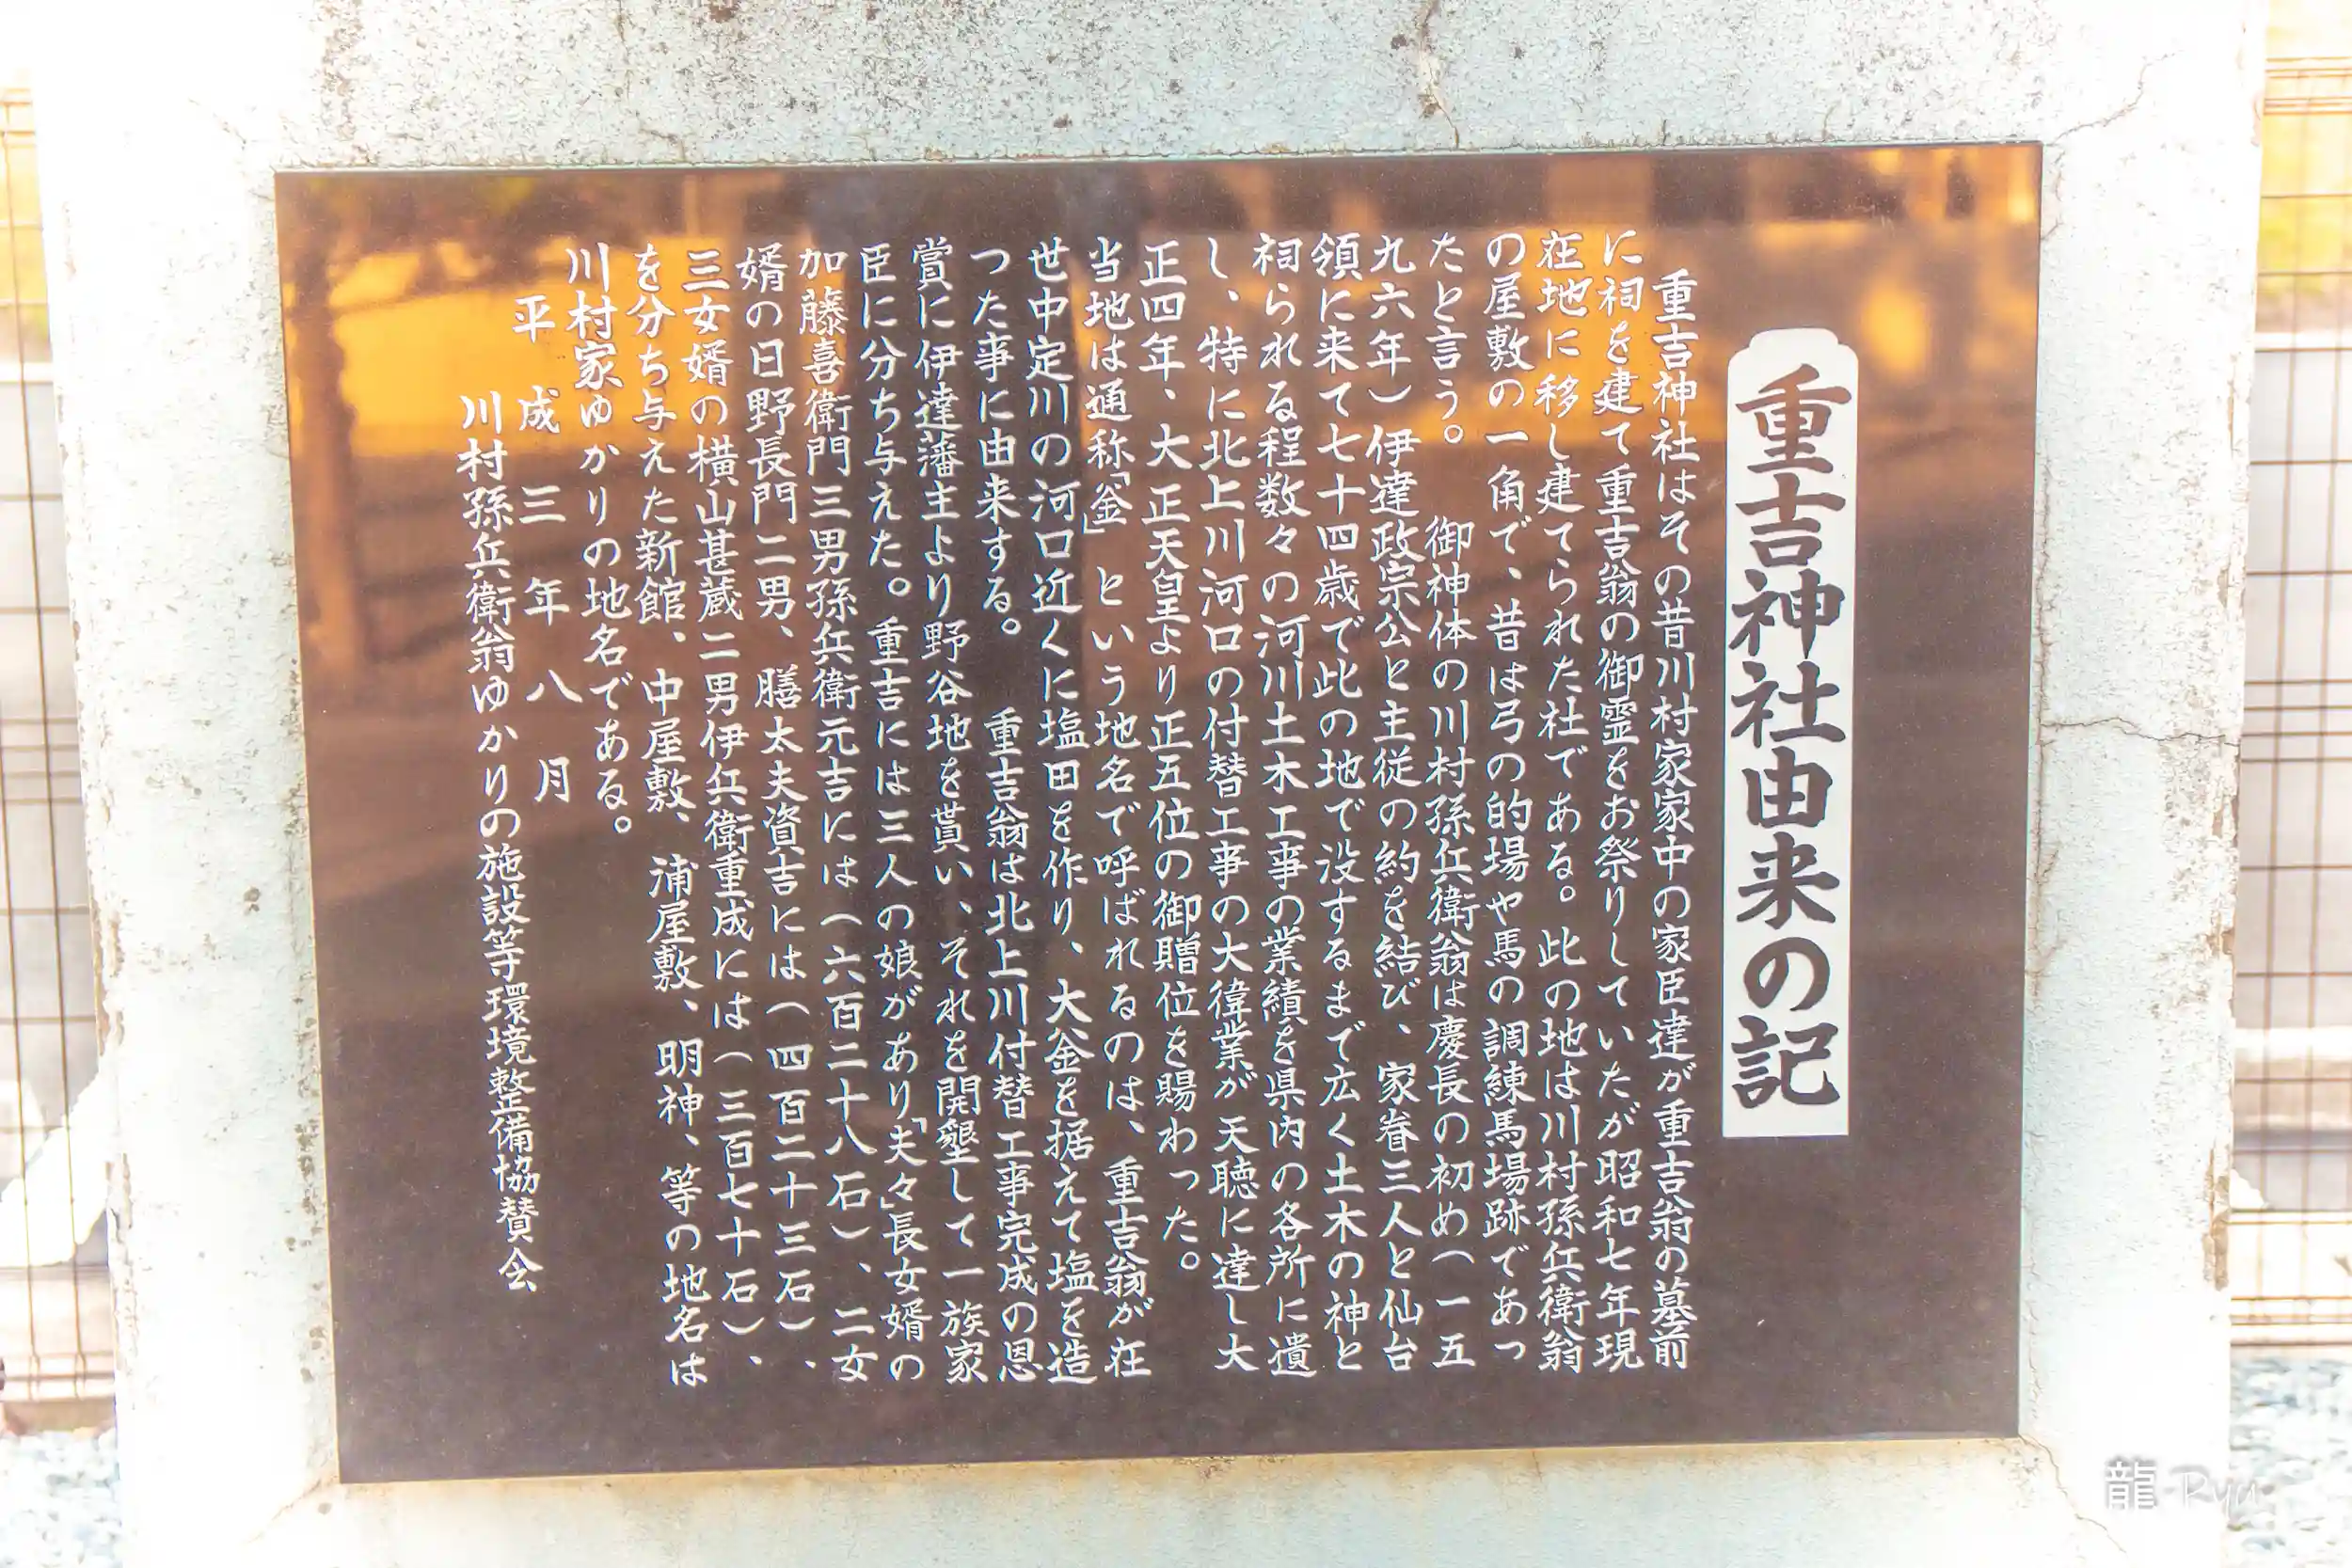 重吉神社由来の記
重吉神社はその昔川村家家中の家臣達が重吉翁の墓前
に祠を建て重吉翁の御霊をお祭りしていたが昭和七年現
在地に移し建てられた社である。此の地は川村孫兵衛翁
の屋敷の一角で、昔は弓の的場や馬の調練馬場跡であっ
たと言う。 御神体の川村孫兵衛翁は慶長の初め(一五
九六年)伊達政宗公と主従の約を結び、家眷三人と仙台
領に来て七十四歳で此の地で没するまで広く土木の神と
祠られる程数々の河川土木工事の業績を県内の各所に遺
し、特に北上川河口の付替工事の大偉業が天聴に達し大
正四年、大正天皇より正五位の御贈位を賜わった。
当地は通称「釜」という地名で呼ばれるのは、重吉翁が在
世中定川の河口近くに塩田を作り、大釜を据えて塩を造
った事に由来する。 重吉翁は北上川付替工事完成の恩
賞に伊達藩主より野谷地を貰い、それを開墾して一族家
臣に分ち与えた。重吉には三人の娘があり「夫々」長女婿の
加藤喜衛門三男孫兵衛元吉には(六百二十八石)、二女
婿の日野長門二男、膳太夫資吉には(四百二十三石)、
三女婿の横山甚蔵二男伊兵衛重成には(三百七十石)、
を分ち与えた新館、中屋敷、浦屋敷、明神、等の地名は
川村家ゆかりの地名である。
平成三年八月
川村孫兵衛翁ゆかりの施設等環境整備協賛会
龍-Ryu